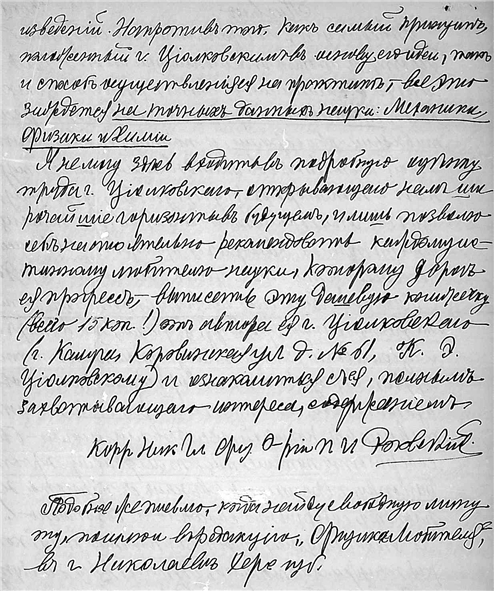 изведений. Напротив того. Какъ самый принципъ,
положенный г. Ціолковскимъ въ основу его идеи, такъ
и способъ осуществленія ея на практикѣ, – все это
зиждется на точныхъ данныхъ науки: Механики,
Физики и Химіи
Я не могу здѣсь входить въ подробную оцѣнку
труда г. Ціолковскаго, открывающаго намъ ши
рочайшіе горизонты въ будущемъ, и лишь позволю
себѣ настоятельно рекомендовать каждому ис-
тинному любителю науки, которому дорогъ
ея прогрессъ, – выписать эту дешевую книжечку
(всего 15 коп!) отъ автора ея г. Ціолковскаго
(г. Калуга, Коровинская ул д. № 61, К. Э.
Ціолковскому) и ознакомиться съ ея, полнымъ
захватывающаго интереса, содержаніемъ
Корр Ник Гл физ О-ріи
въ г Николаевъ Херс губ.